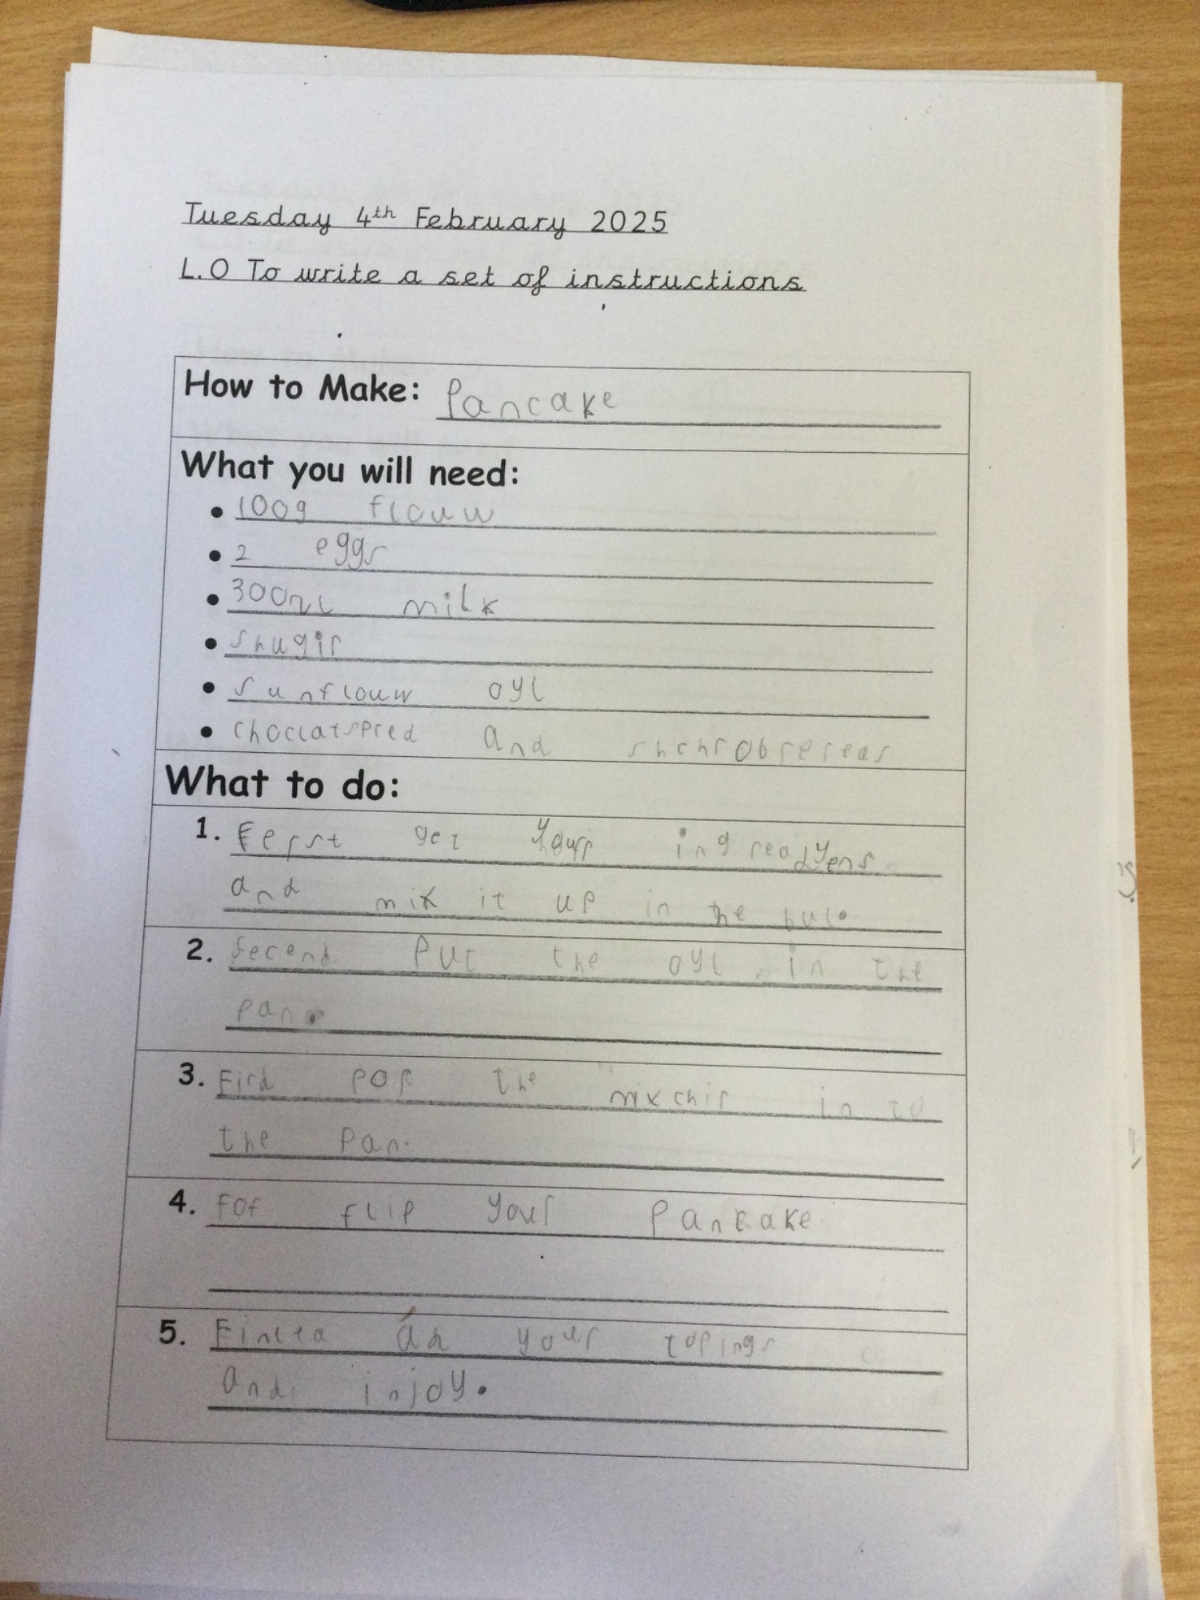 Tuesday 4th February 2025
L.O To write a set of instructions
How to Make: Pancake
What you will need:
• 100g flouw
• 2 eggs
• 300ml milk
• shugir
• sunflouw oyl
• choclatspred and
What to do:
1. Ferst get your ingreadyens
and mix it up in the bul.
2. Second put the oyl in the
pan.
3. Fird por the mixchir in to
the pan.
4. Fof flip your pancake
5. your topings
and injoy.